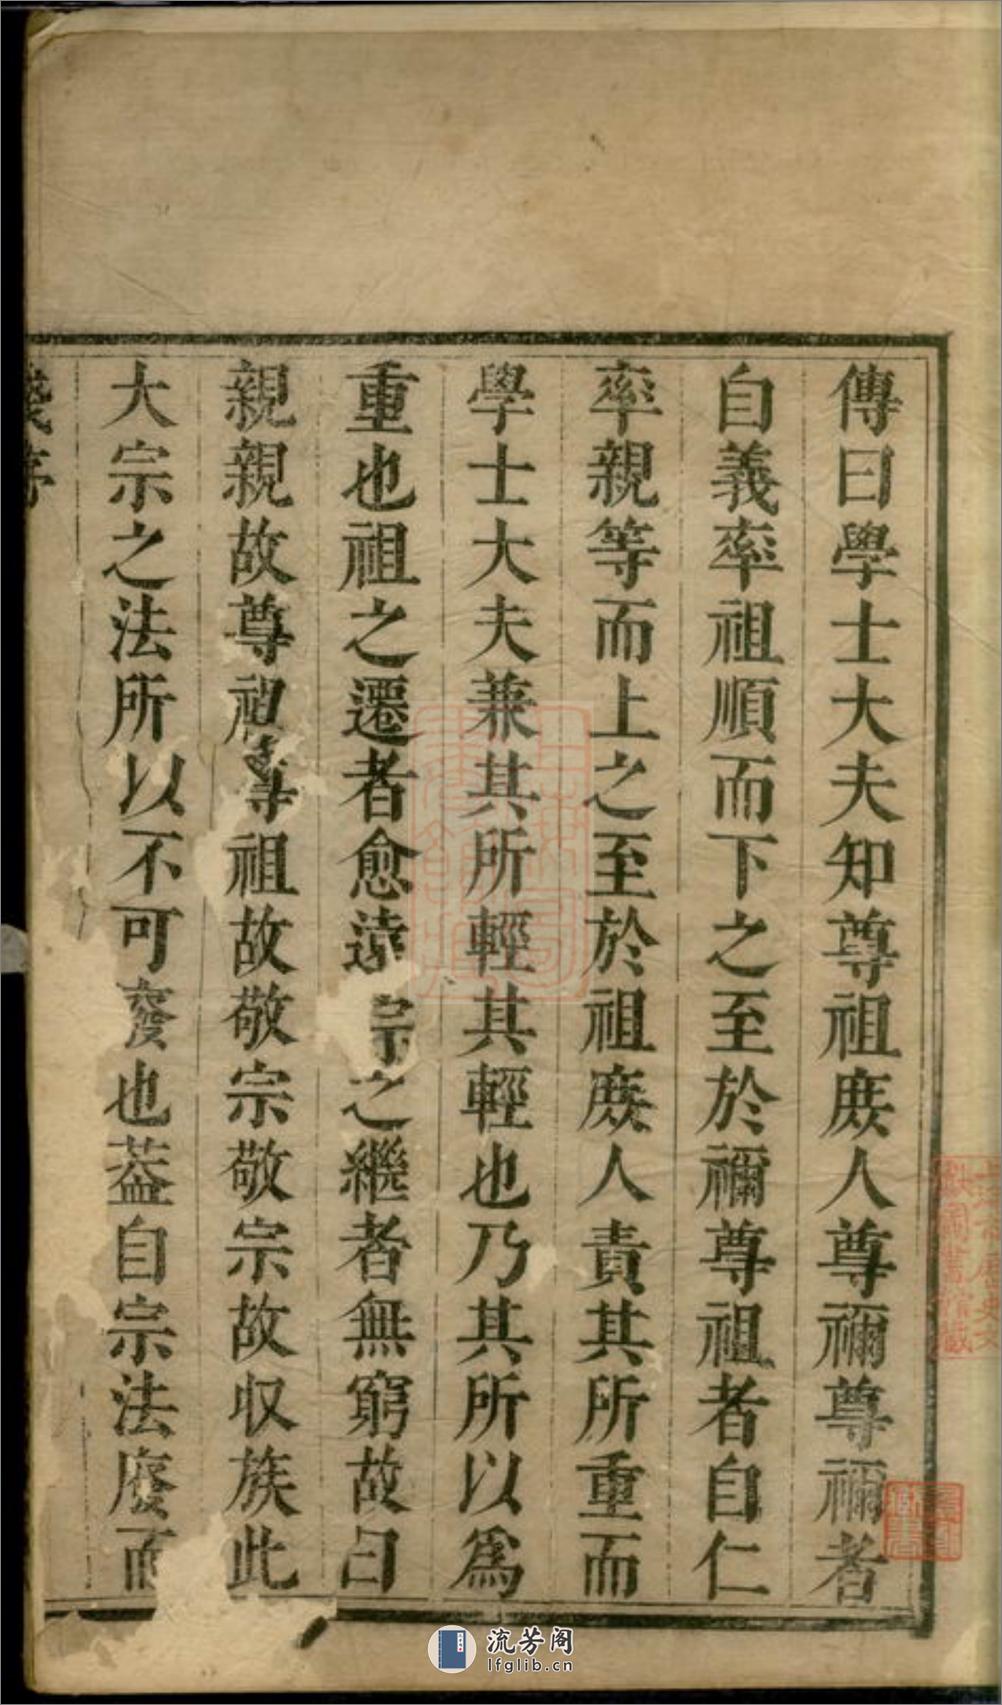 傳曰學士大夫知尊祖庻人尊禰尊禰者
自義率祖順而下之至於禰尊祖者自仁
率親等而上之至於祖庻人責其所重而
學士大夫兼其所輕其輕也乃其所以爲
重也祖之遷者愈遠宗之繼者無窮故曰
親親故尊祖尊祖故敬宗敬宗故収族此
大宗之法所以不可廢也葢自宗法廢而
流芳阁
lfglib.cn